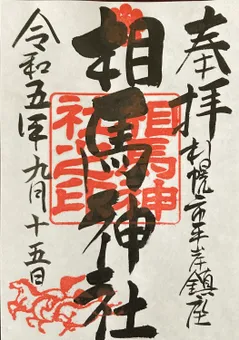 奉拝
札幌市平岸鎮座
相馬神社
相馬神社之印
令和五年九月十五日